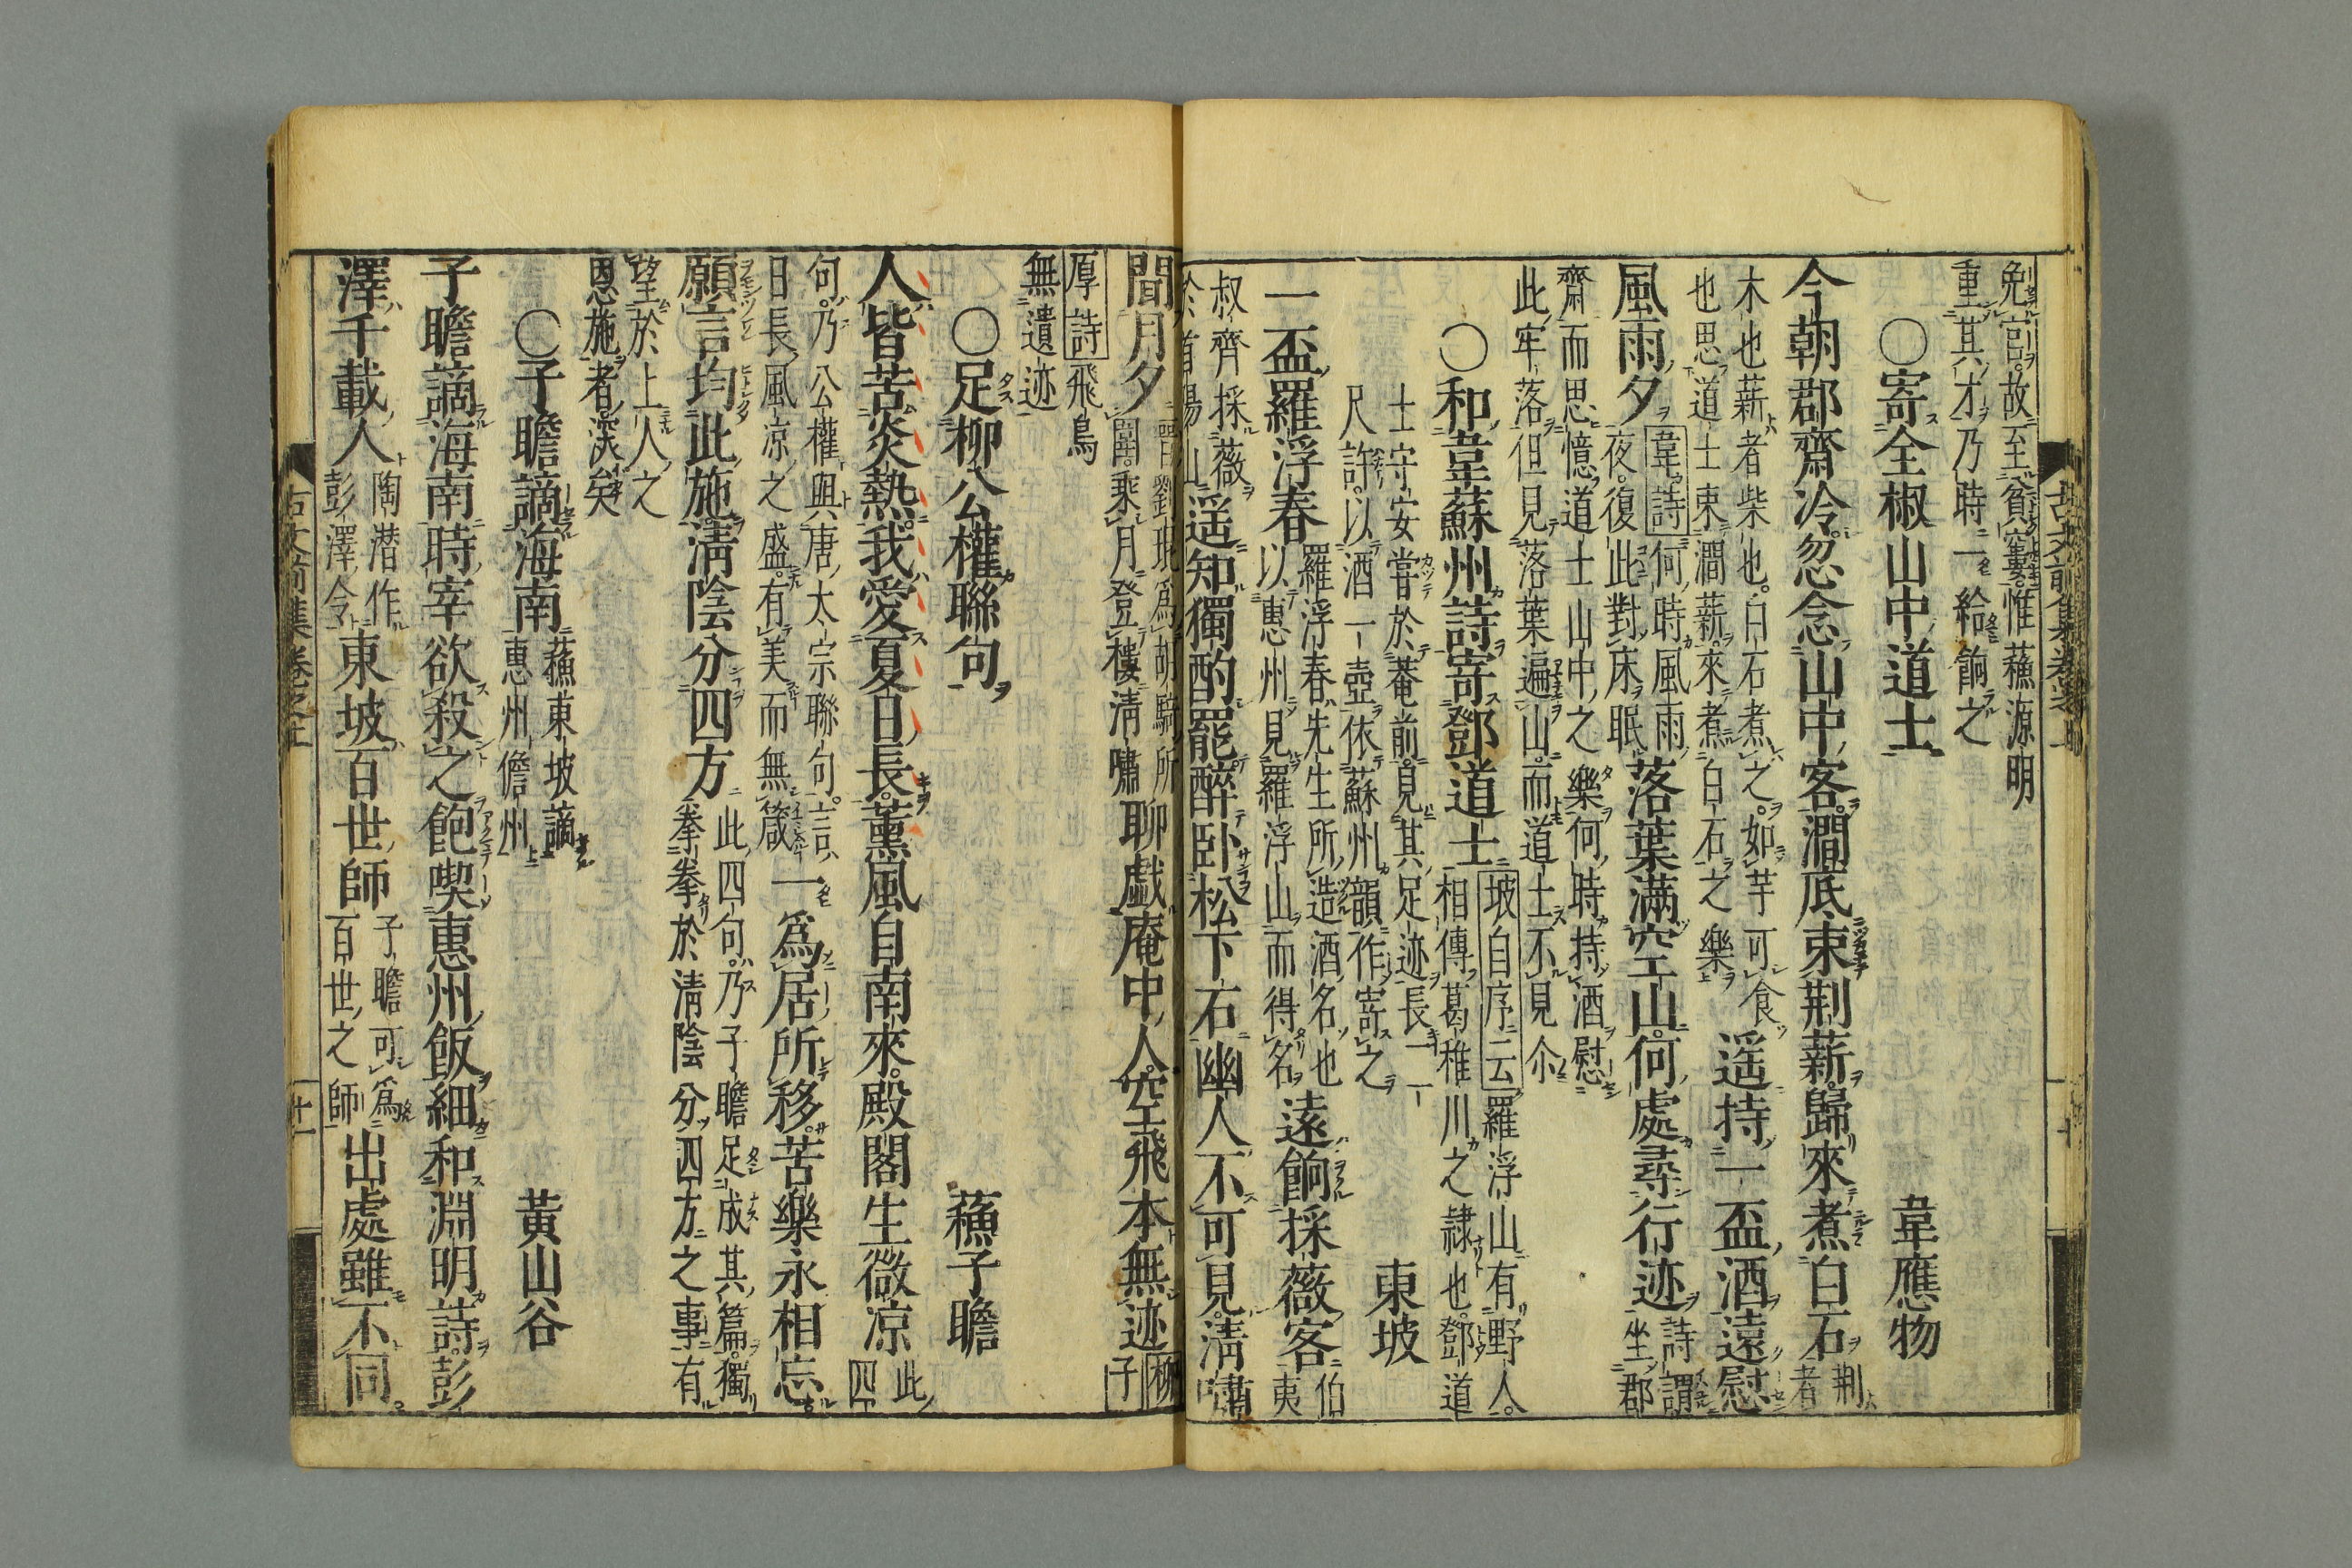 免官故至貧窶惟蘓源明
重其才乃時一給餉之
〇寄全椒山中道士 韋應物
今朝郡齋冷忽念山中客澗底束荆薪歸來煮白石荆者
木也薪者柴也白石煮之如芋可食
也思道士束澗薪來煮白石之樂
遥持一盃酒遠慰
風雨夕韋詩何時風雨
夜復此對床眠
落葉滿空山何處尋行迹詩謂坐郡
齋而思憶道士山中之樂何時持酒慰
此牢落但見落葉遍山而道士不見尒
〇和韋蘇州詩寄鄧道士坡自序云羅浮山有野人
相傳葛稚川之隷也鄧道
士守安嘗於菴前見其足迹長二
尺許以酒一壺依蘇州韻作寄之
東坡
一盃羅浮春羅浮春先生所造酒名也
以惠州見羅浮山而得名
遠餉採薇客伯夷
叔齊採薇
於首陽山
遥知獨酌罷醉卧松下石幽人不可見淸嘯
聞月夕晋劉琨為胡騎所
圍乘月登樓淸嘯
聊戱庵中人空飛本無迹柳子
厚詩飛鳥
無遺迹
〇足柳公權聯句 蘓子瞻
人皆苦炎熱我愛夏日長薫風自南來殿閣生微凉此四
句乃公權與唐太宗聯句言
日長風凉之盛有美而無箴
一爲居所移苦樂永相忘
願言均此施淸陰分四方此四句乃子瞻足成其篇獨
拳拳於淸陰分四方之事有
望於上人之
恩施者深矣
〇子瞻謫海南蘓東坡謫
惠州儋州
黃山谷
子瞻謫海南時宰欲殺之飽喫惠州飯細和淵明詩彭
澤千載人陶潜作
彭澤令
東坡百世師子瞻可為
百世之師
出處雖不同
古文前集卷之上 十一